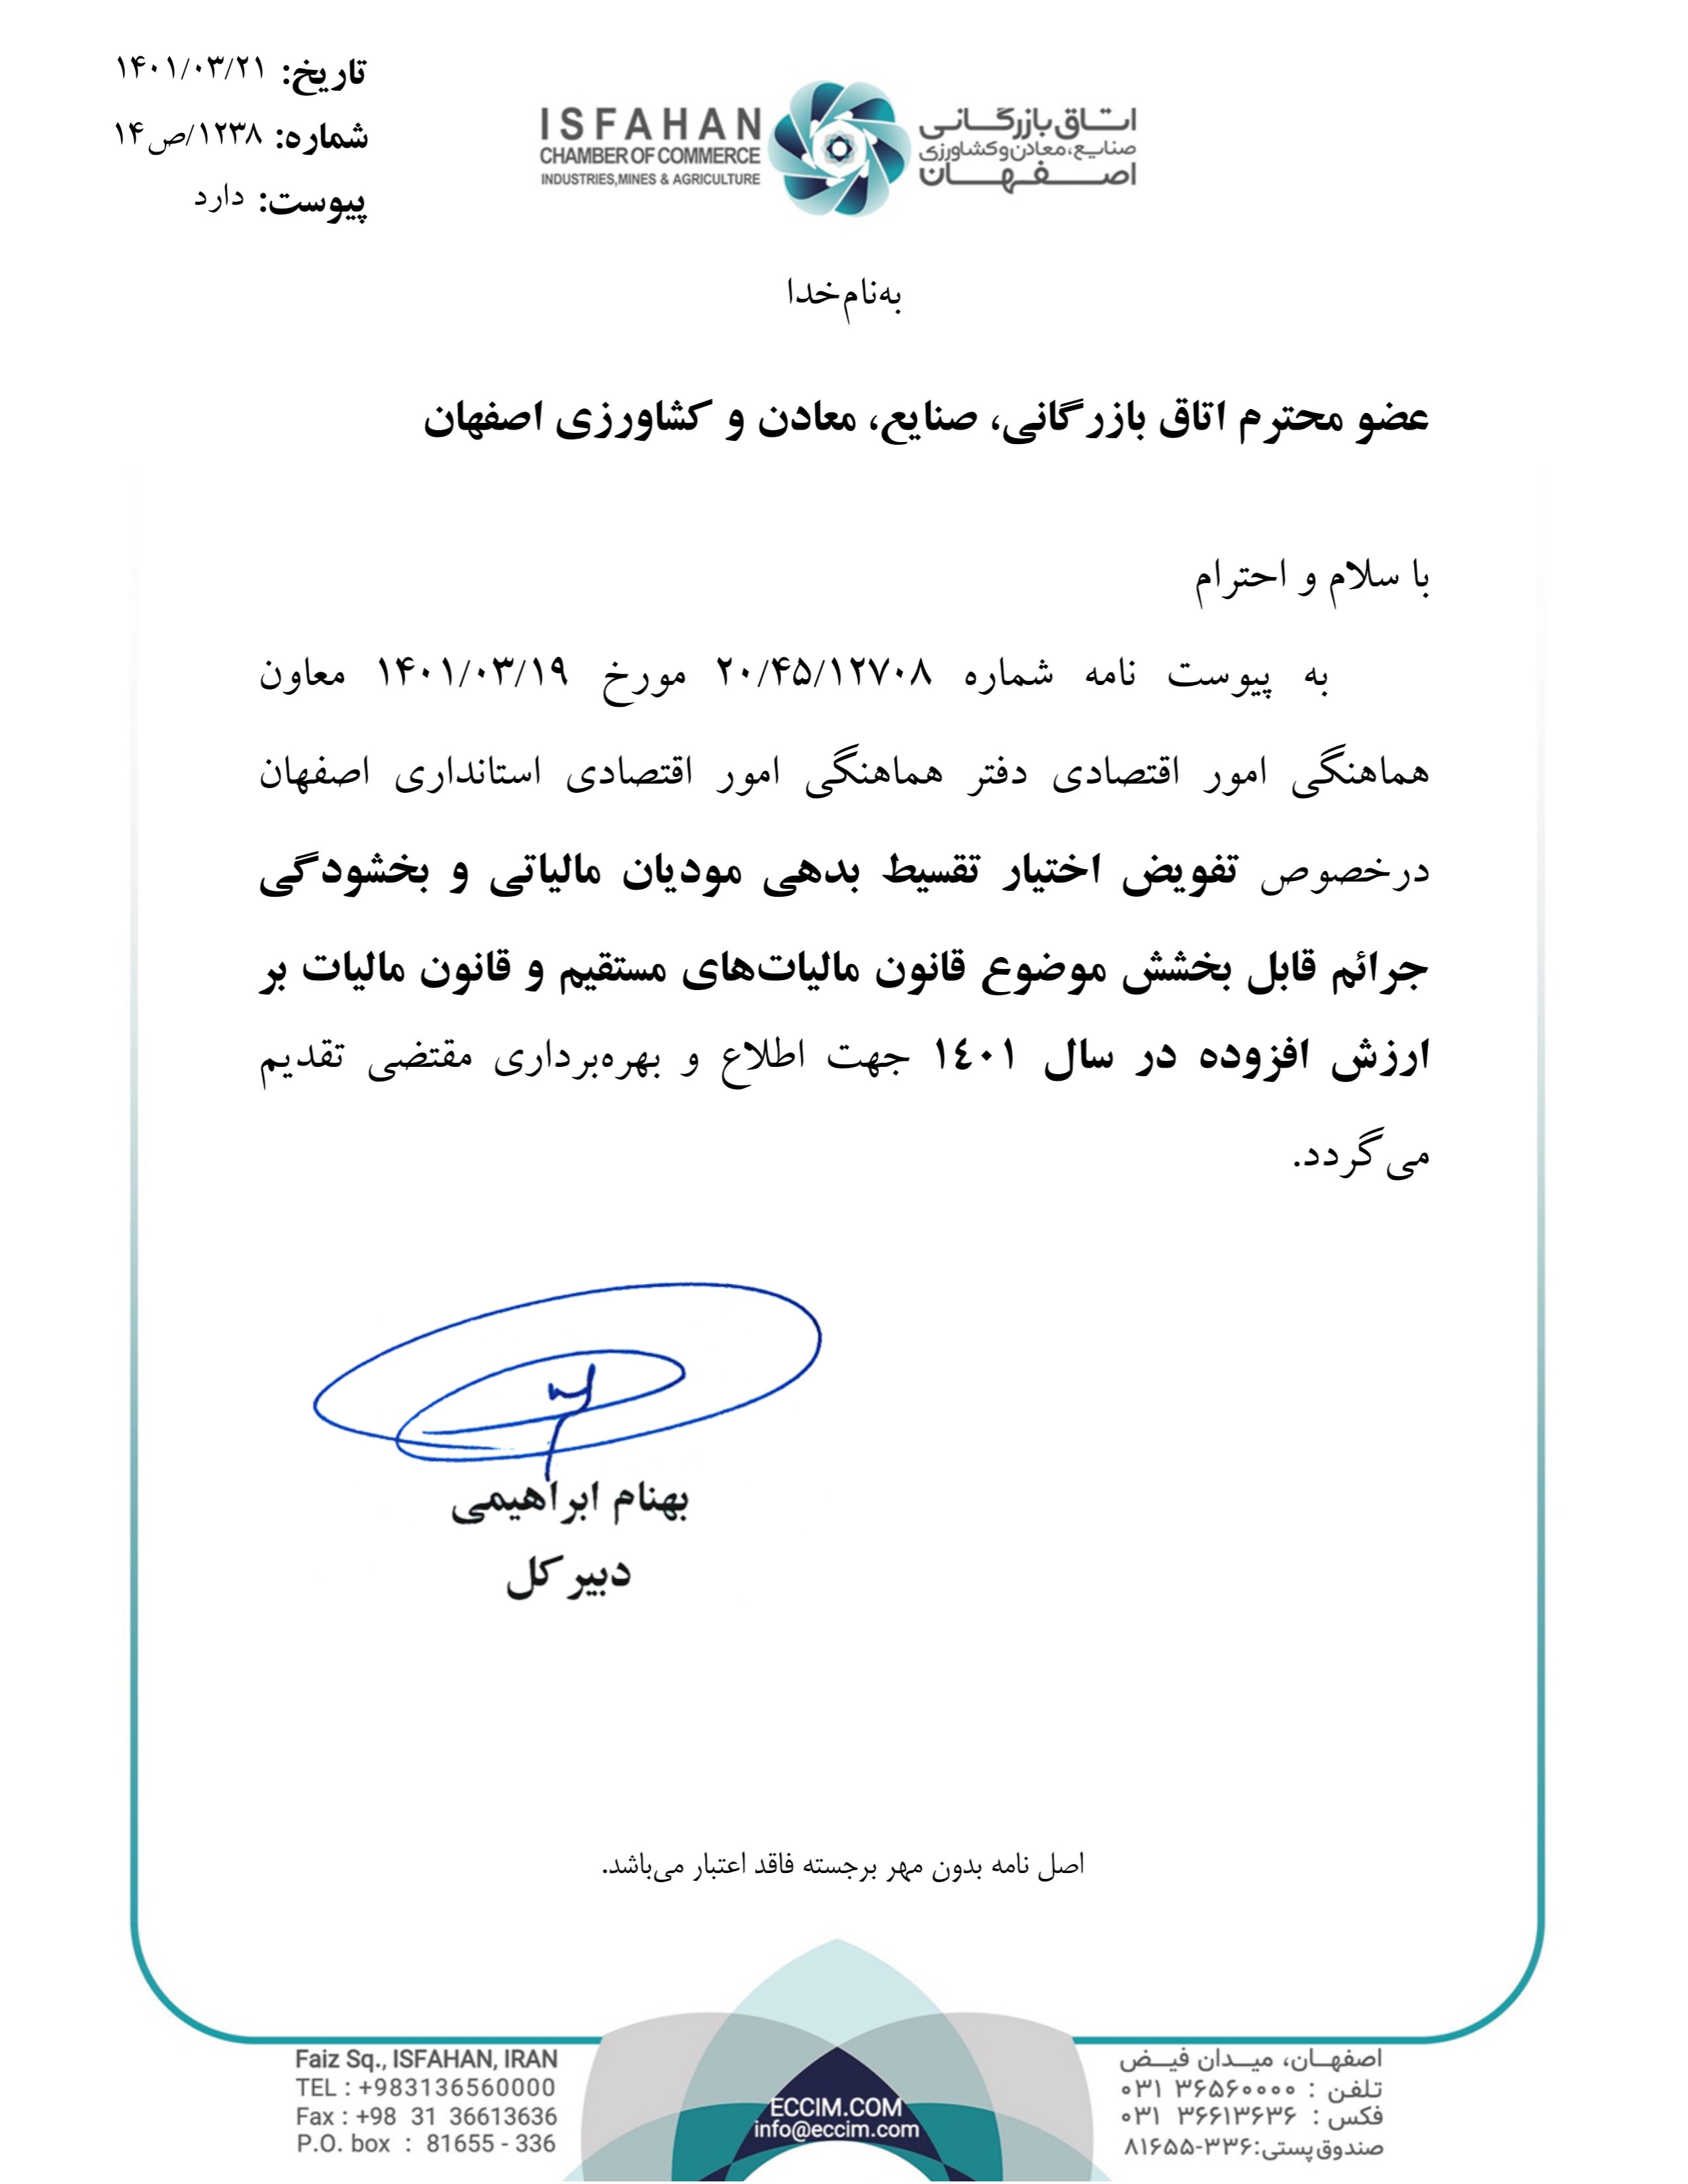 تاریخ: ۱۴۰۱/۰۳/۲۱
شماره: ۱۲۳۸/ص۱۴
پیوست: دارد
ISFAHAN
CHAMBER OF COMMERCE
INDUSTRIES,MINES & AGRICULTURE
اتاق بازرگانی
صنایع، معادن و کشاورزی
اصفهان
به‌نام‌خدا
عضو محترم اتاق بازرگانی، صنایع، معادن و کشاورزی اصفهان
با سلام و احترام
به پیوست نامه شماره ۲۰/۴۵/۱۲۷۰۸ مورخ ۱۴۰۱/۰۳/۱۹ معاون
هماهنگی امور اقتصادی دفتر هماهنگی امور اقتصادی استانداری اصفهان
درخصوص تفویض اختیار تقسیط بدهی مودیان مالیاتی و بخشودگی
جرائم قابل بخشش موضوع قانون مالیات‌های مستقیم و قانون مالیات بر
ارزش افزوده در سال ١٤٠١ جهت اطلاع و بهره‌برداری مقتضی تقدیم
می‌گردد.
بهنام ابراهیمی
دبیر کل
اصل نامه بدون مهر برجسته فاقد اعتبار می‌باشد.
Faiz Sq., ISFAHAN, IRAN
TEL : +983136560000
Fax : +98 31 36613636
P.O. box : 81655 - 336
ECCIM.COM
info@eccim.com
اصفهــان، میــدان فیــض
تلفن : ۰۳۱ ۳۶۵۶۰۰۰۰
فکس : ۰۳۱ ۳۶۶۱۳۶۳۶
صندوق پستی: ۸۱۶۵۵-۳۳۶